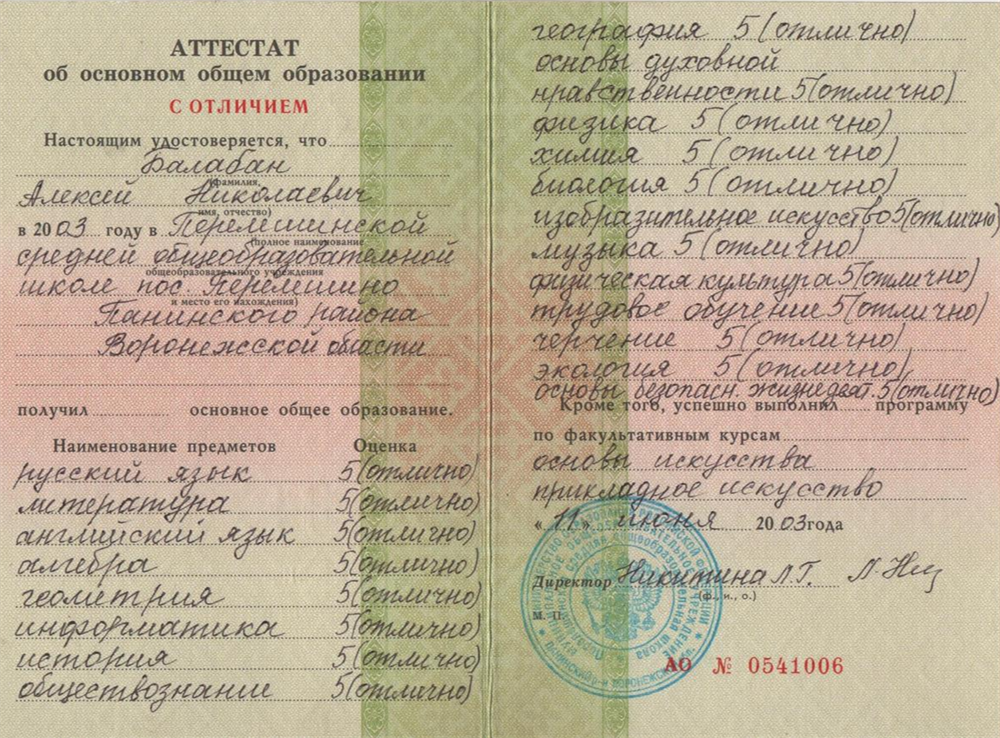 АТТЕСТАТ
об основном общем образовании
С ОТЛИЧИЕМ
Настоящим удостоверяется, что
Балабан
(фамилия,
Алексей Николаевич
имя, отчество)
в 2003 году в Перелешинской
(полное наименование
средней общеобразовательной
общеобразовательного учреждения
школе пос. Перелешино
и место его нахождения)
Панинского района
Воронежской области
получил основное общее образование.
Наименование предметов Оценка
русский язык 5(отлично)
литература 5(отлично)
английский язык 5(отлично)
алгебра 5(отлично)
геометрия 5(отлично)
информатика 5(отлично)
история 5(отлично)
обществознание 5(отлично)
география 5(отлично)
основы духовной
нравственности 5(отлично)
физика 5(отлично)
химия 5(отлично)
биология 5(отлично)
изобразительное искусство 5(отлично)
музыка 5(отлично)
физическая культура 5(отлично)
трудовое обучение 5(отлично)
черчение 5(отлично)
экология 5(отлично)
основы безопасн. жизнедеят. 5(отлично)
Кроме того, успешно выполнил программу
по факультативным курсам
основы искусства
прикладное искусство
« 11 » июня 2003 года
Директор Никитина Л.Г.
(ф., и., о.)
М. П.
АО № 0541006